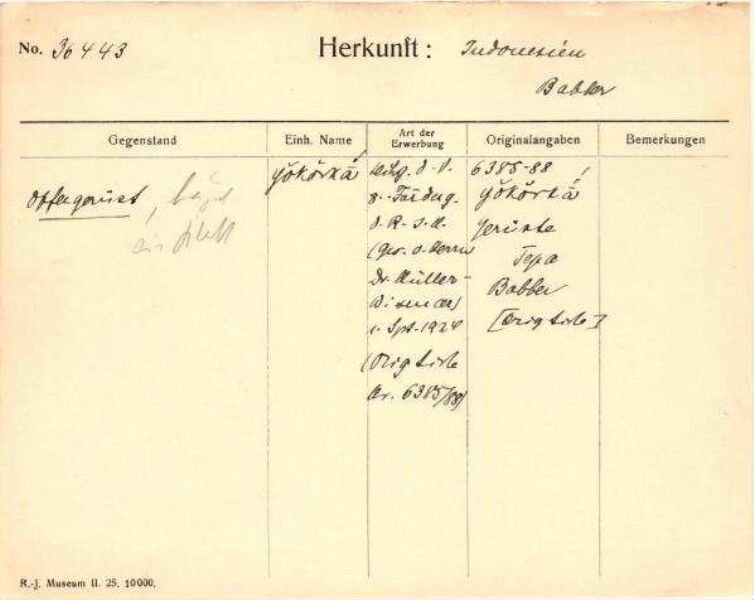 No. 36443
Herkunft: Indonesien
Babber
Gegenstand
Einh. Name
Art der Erwerbung
Originalangaben
Bemerkungen
Opfergerüst,
ein Blatt
yŏkŏrkā
d. V.
z. Förderg.
d. R-J-M.
(Ges. d. Herrn
Dr. Müller-
Wismar)
1. Spt. 1924
(Orig liste
Nr. 6385/88)
6385-88
yŏkŏrkā
Gerüste
Tepa
Babber
[Orig liste]
R.-J. Museum II. 25. 10000.